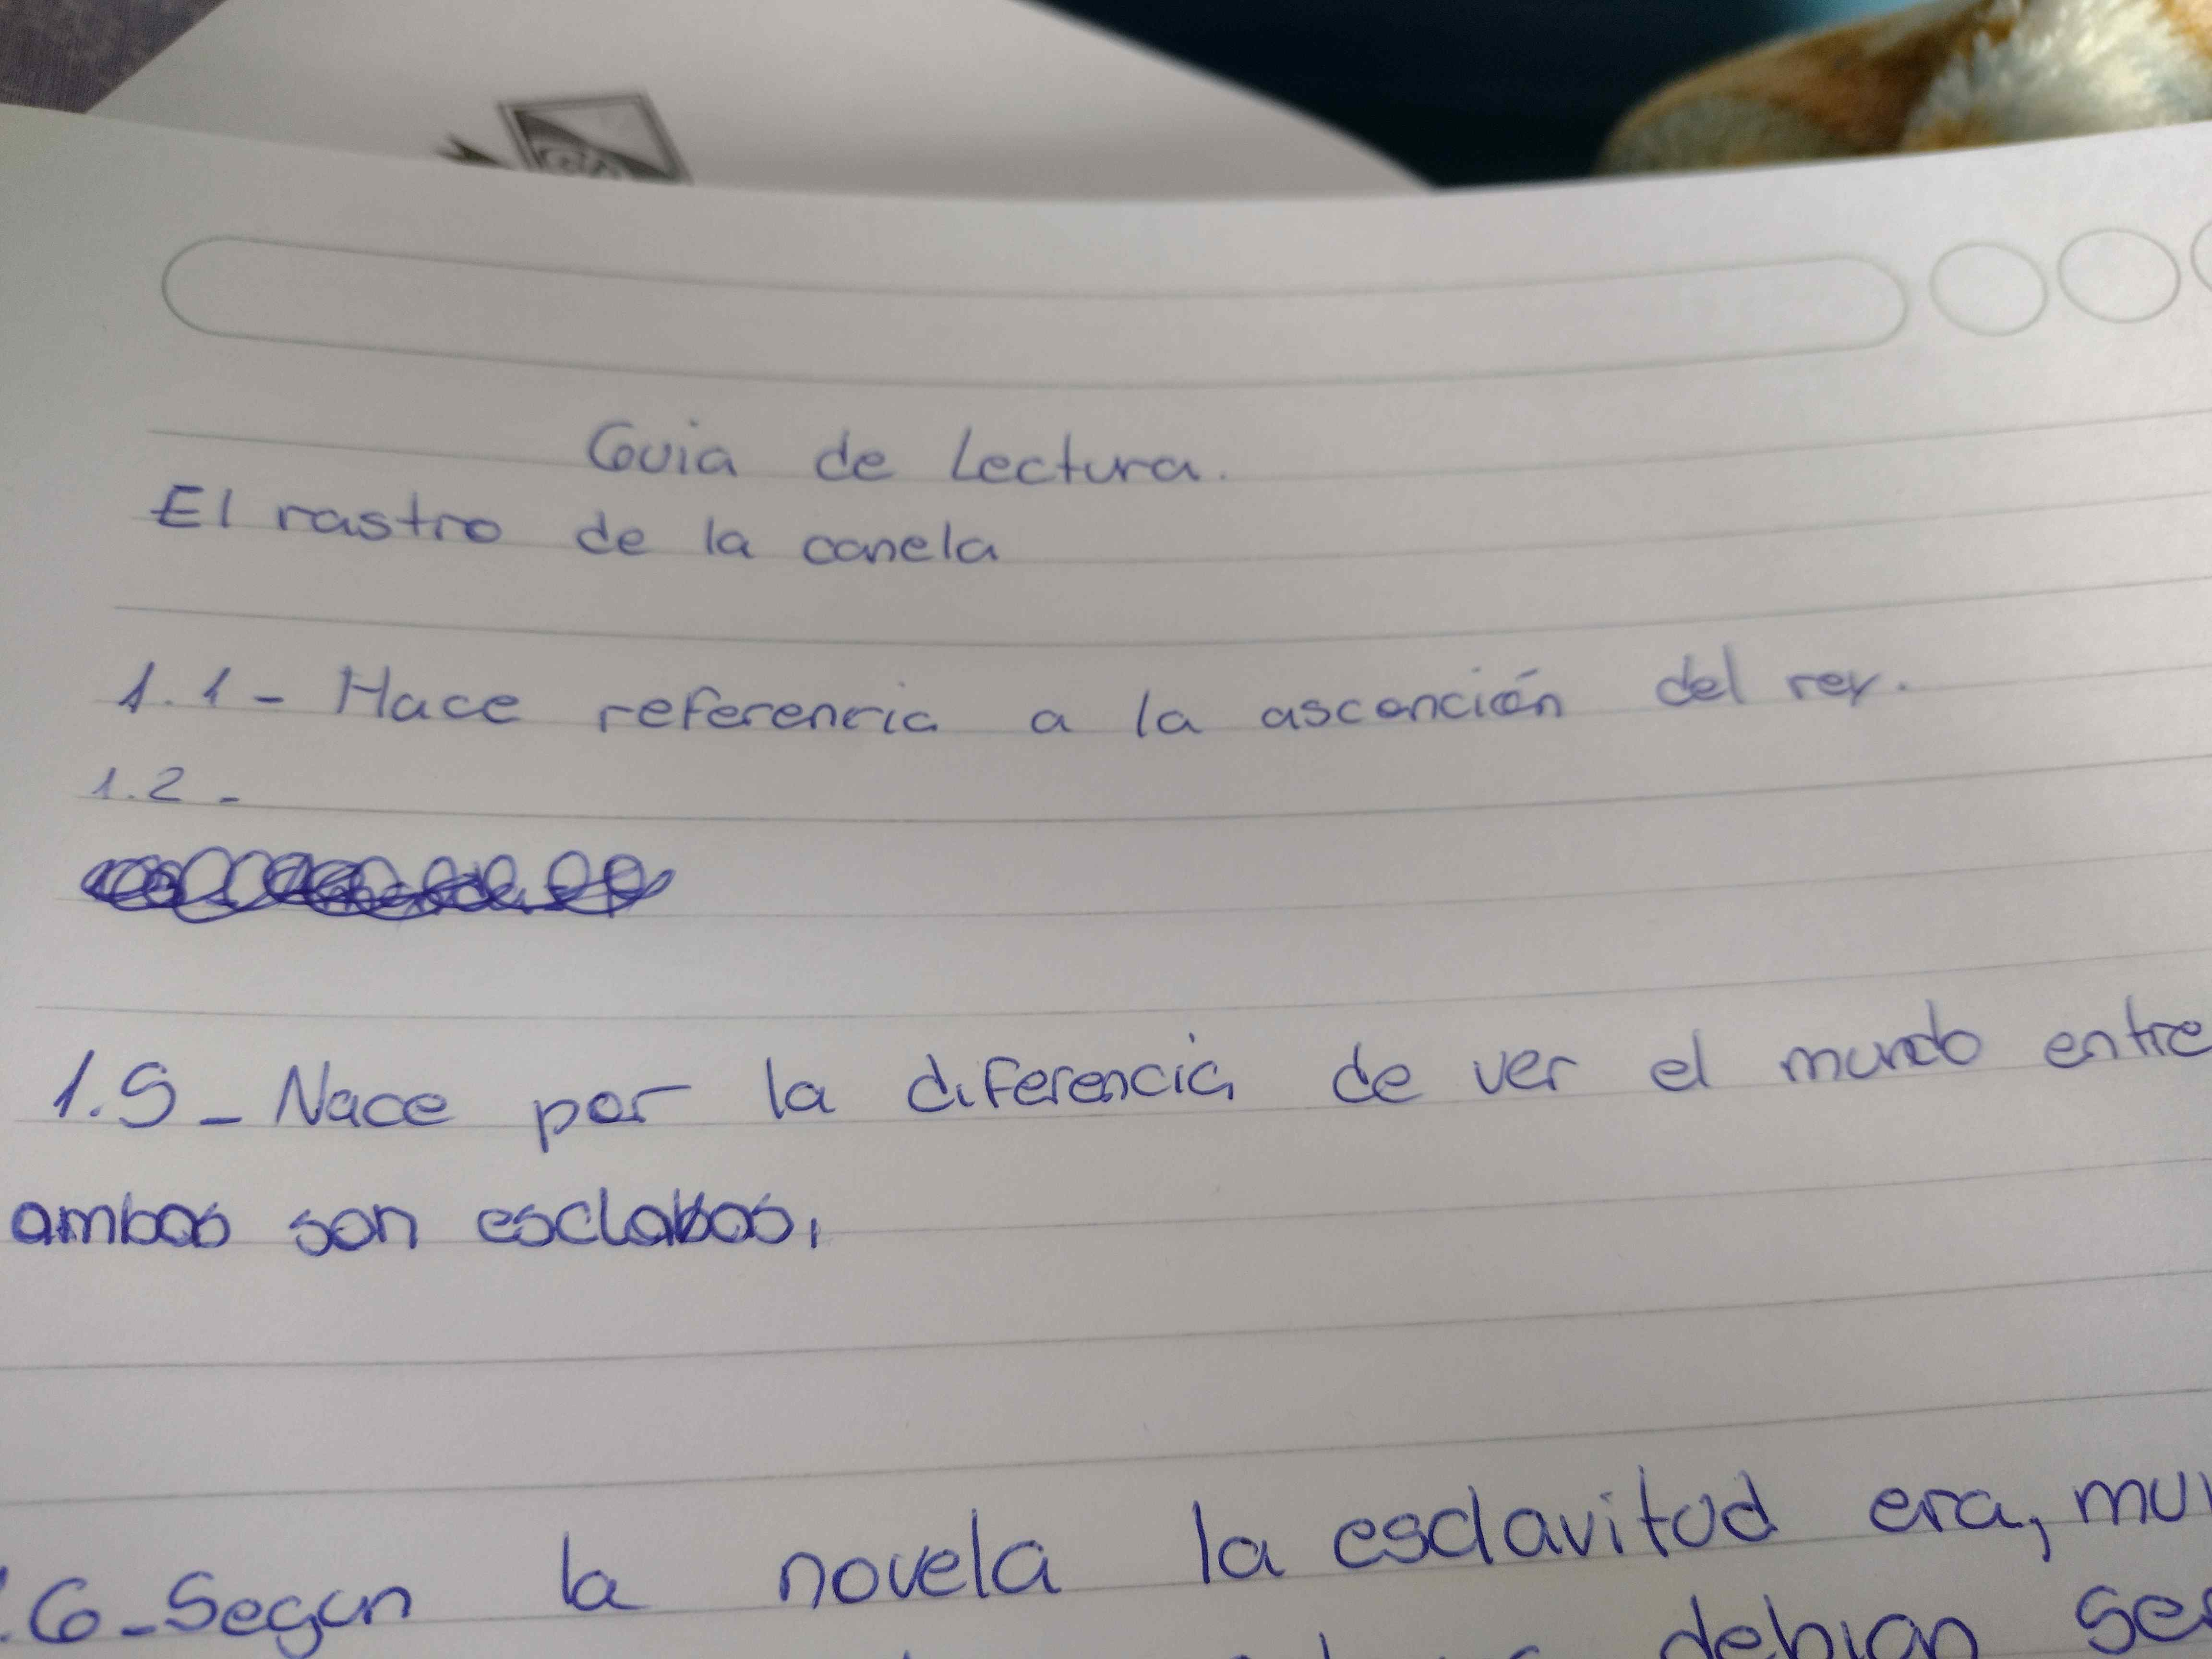 Guia de Lectura.
El rastro de la canela
1.1- Hace referencia a la ascención del rey.
1.2-
1.5- Nace por la diferencia de ver el mundo entre
ambos son esclabos,
.6-Segun la novela la esclavitud era, muy
debian